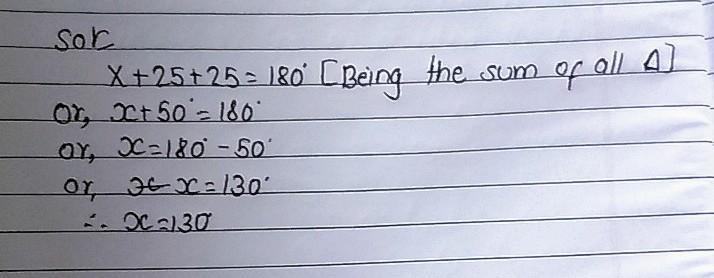 Sol
X+25+25=180° [Being the sum of all Δ]
or, x+50°=180°
or, x=180°-50°
or, x=130°
∴ x=130°